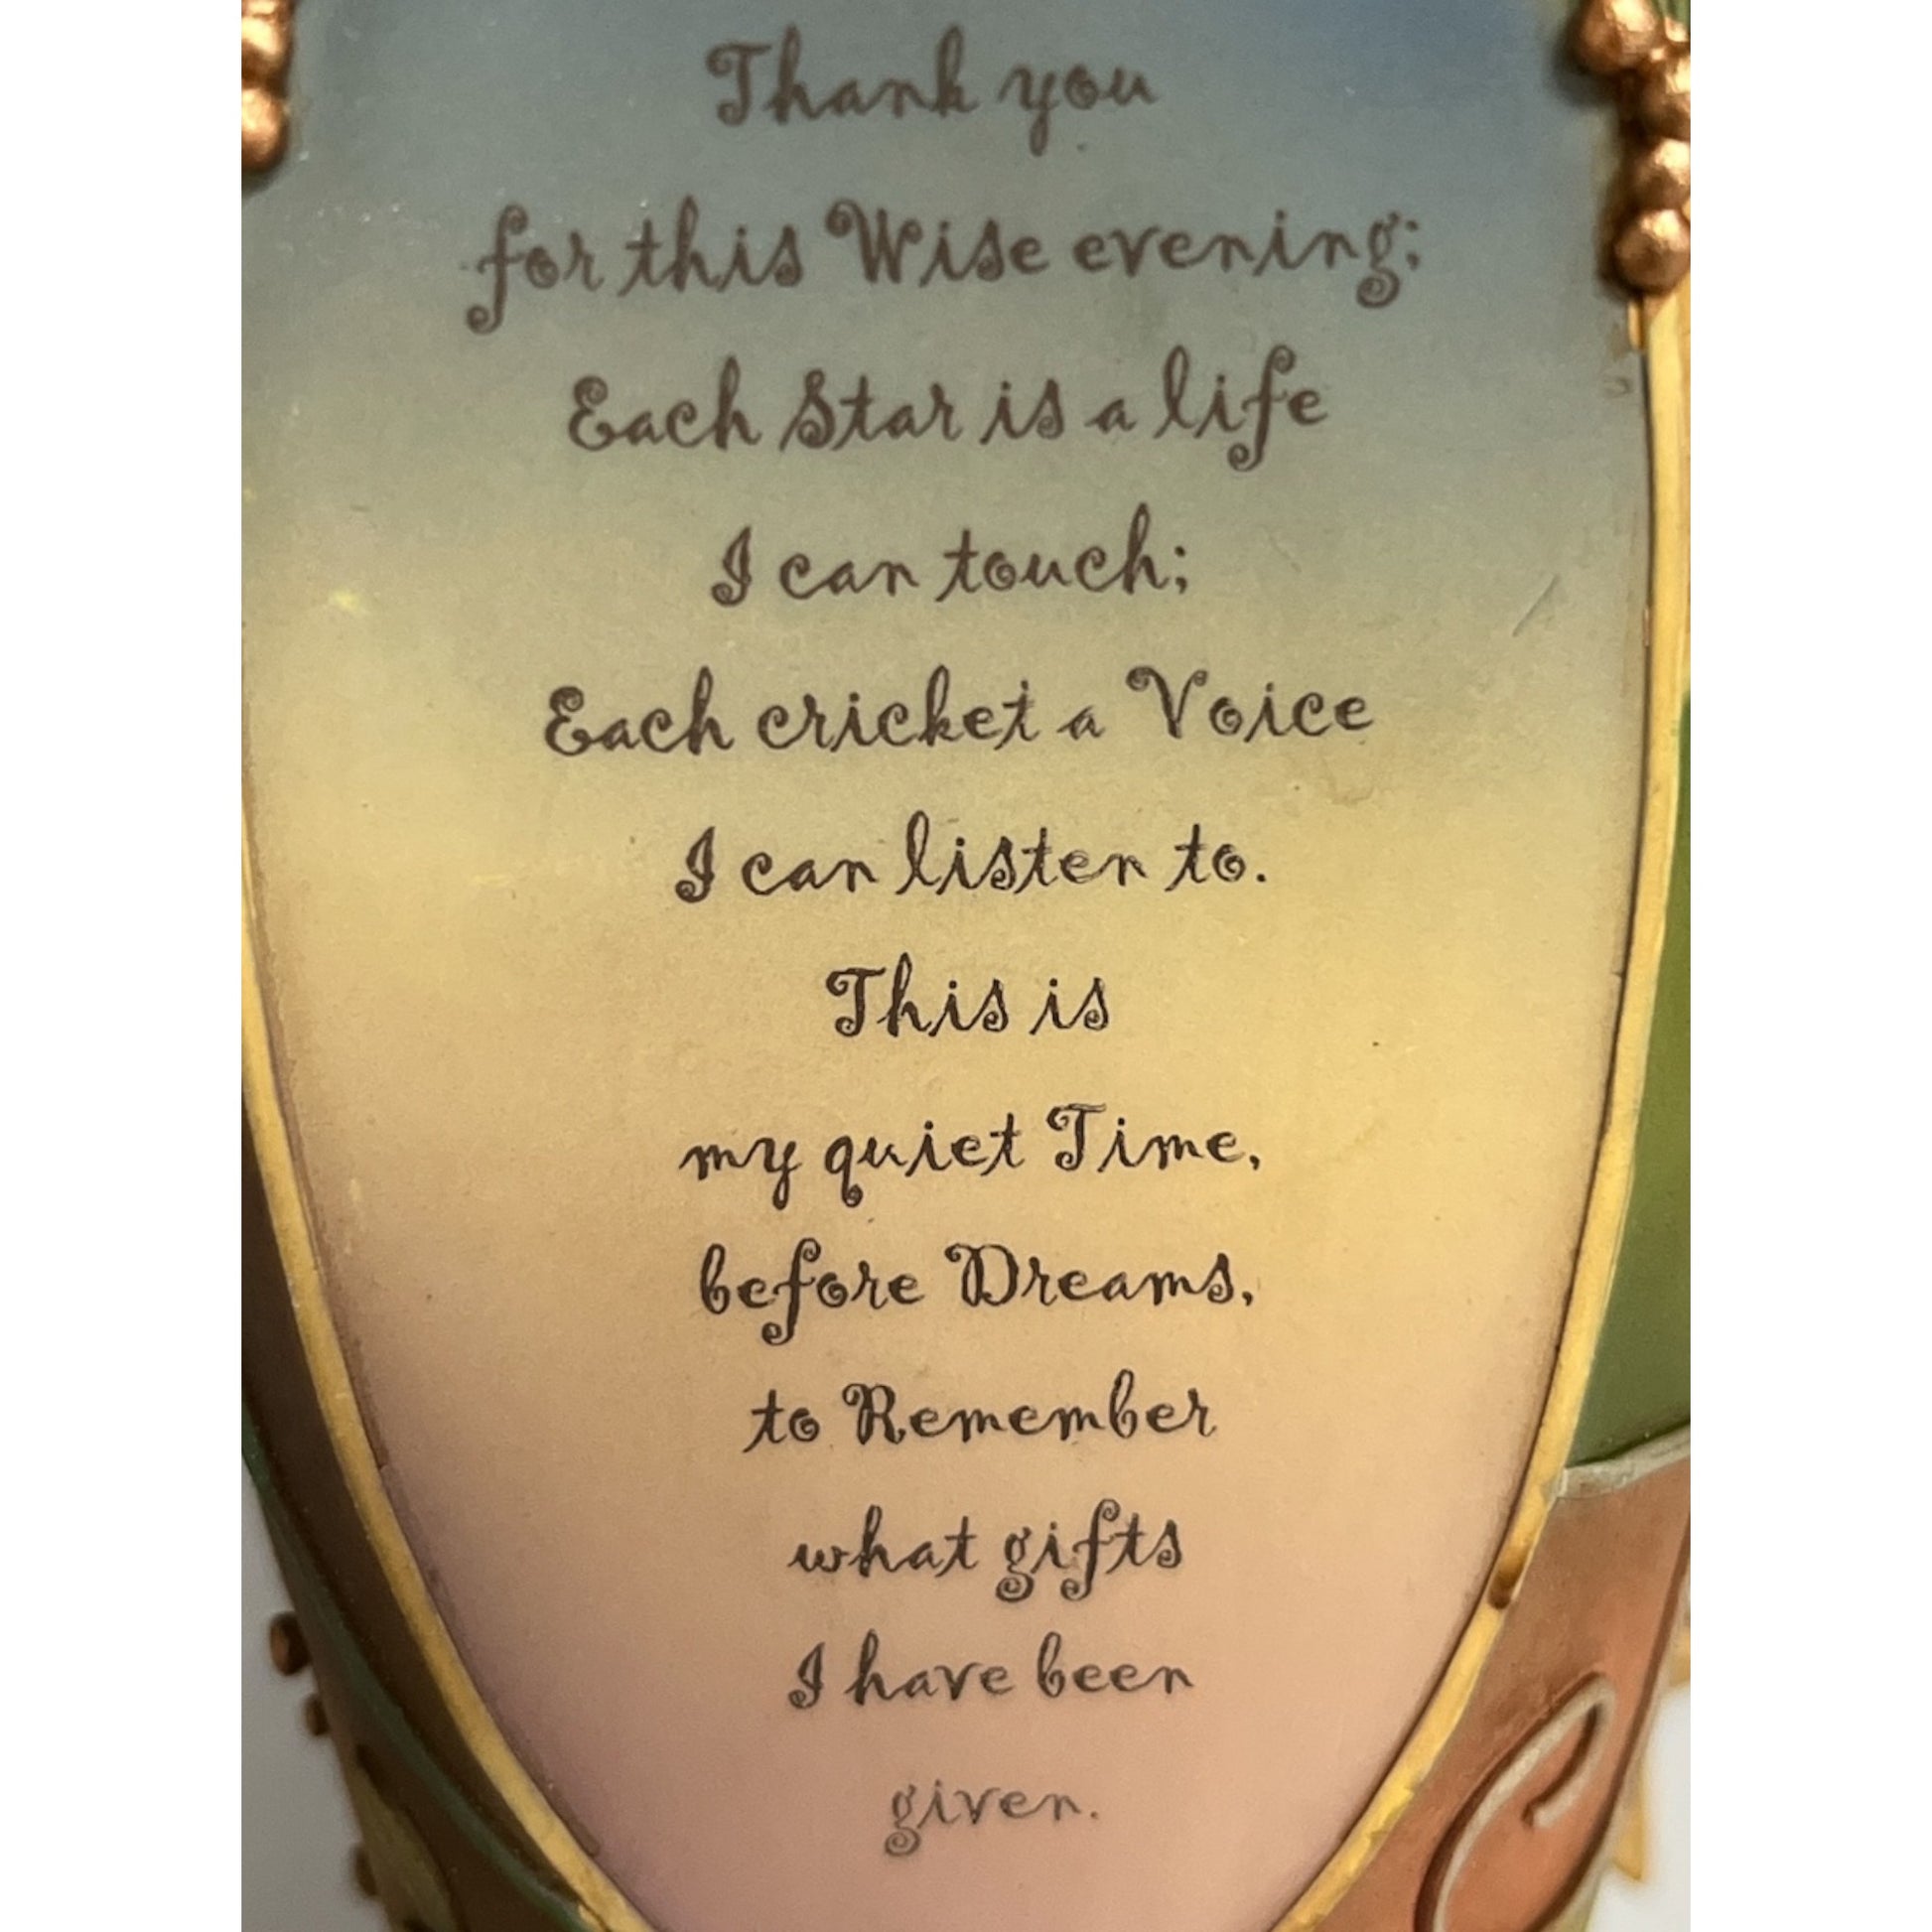 Thank you
for this Wise evening;
Each Star is a life
I can touch;
Each cricket a Voice
I can listen to.
This is
my quiet Time,
before Dreams,
to Remember
what gifts
I have been
given.